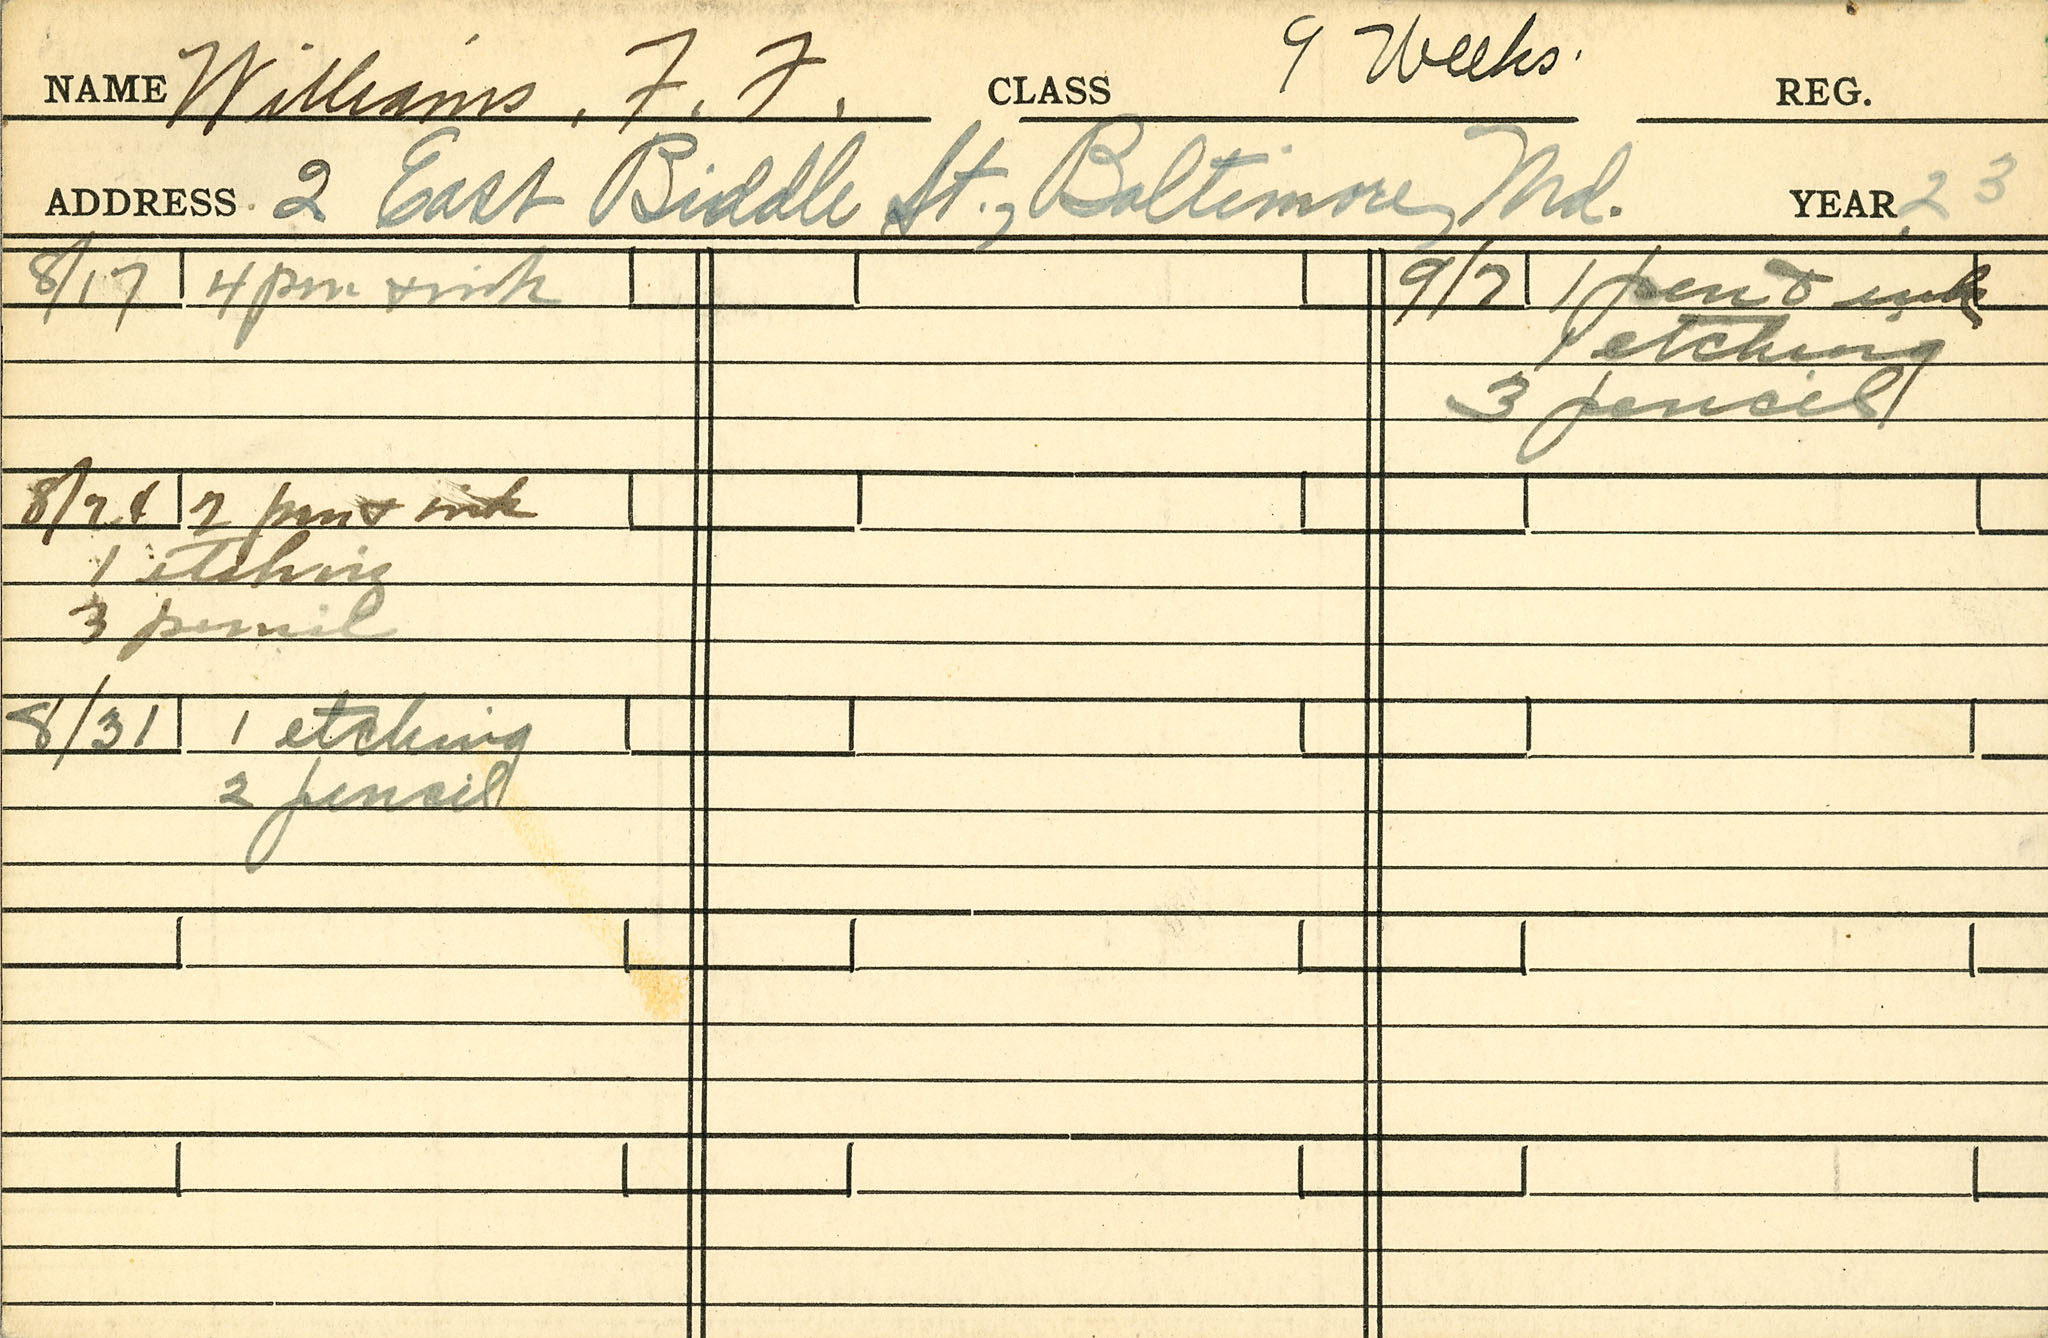 NAME Williams, F. F. CLASS 9 Weeks. REG.
ADDRESS 2 East Biddle St., Baltimore, Md. YEAR 23
8/17 4 pen & ink
8/24 2 pen & ink
1 etching
3 pencil
8/31 1 etching
2 pencil
9/7 1 pen & ink
1 etching
3 pencil